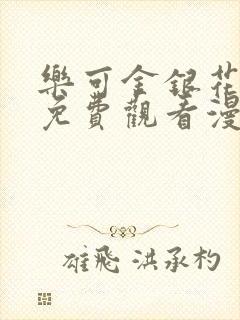 樂可金銀花
免費觀看漫
雄飛 洪承杓